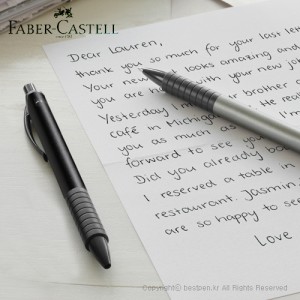 FABER-CASTELL
since 1761
Dear Lauren,
thank you so much for your last lett
Your new looks amazing and
you are with your new job
Yesterday I my brother
café in Michigan
you as much as
forward to see you
Did you already book
I reserved a table in
restaurant. Jasmin
are so happy to see
Love
Copyrightⓒ bestpen.kr All Rights Reserved